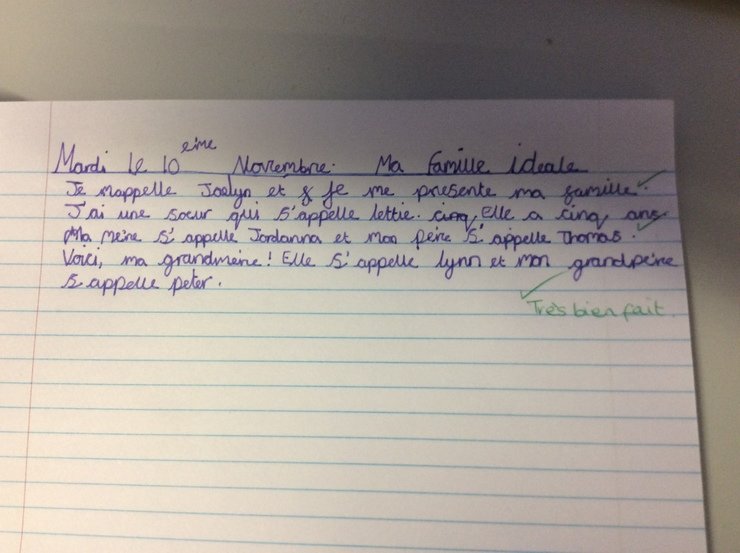 Mardi le 10 eme Novembre. Ma famille ideale
Je mappelle Joelyn et Je me presente ma famille.
J'ai une sœur qui s'appelle lettie. cinq Elle a cinq ans
Ma mère s'appelle Jordanna et mon père s'appelle Thomas.
Voici, ma grandmère! Elle s'appelle Lynn et mon grandpère
s'appelle peter.
Très bien fait.